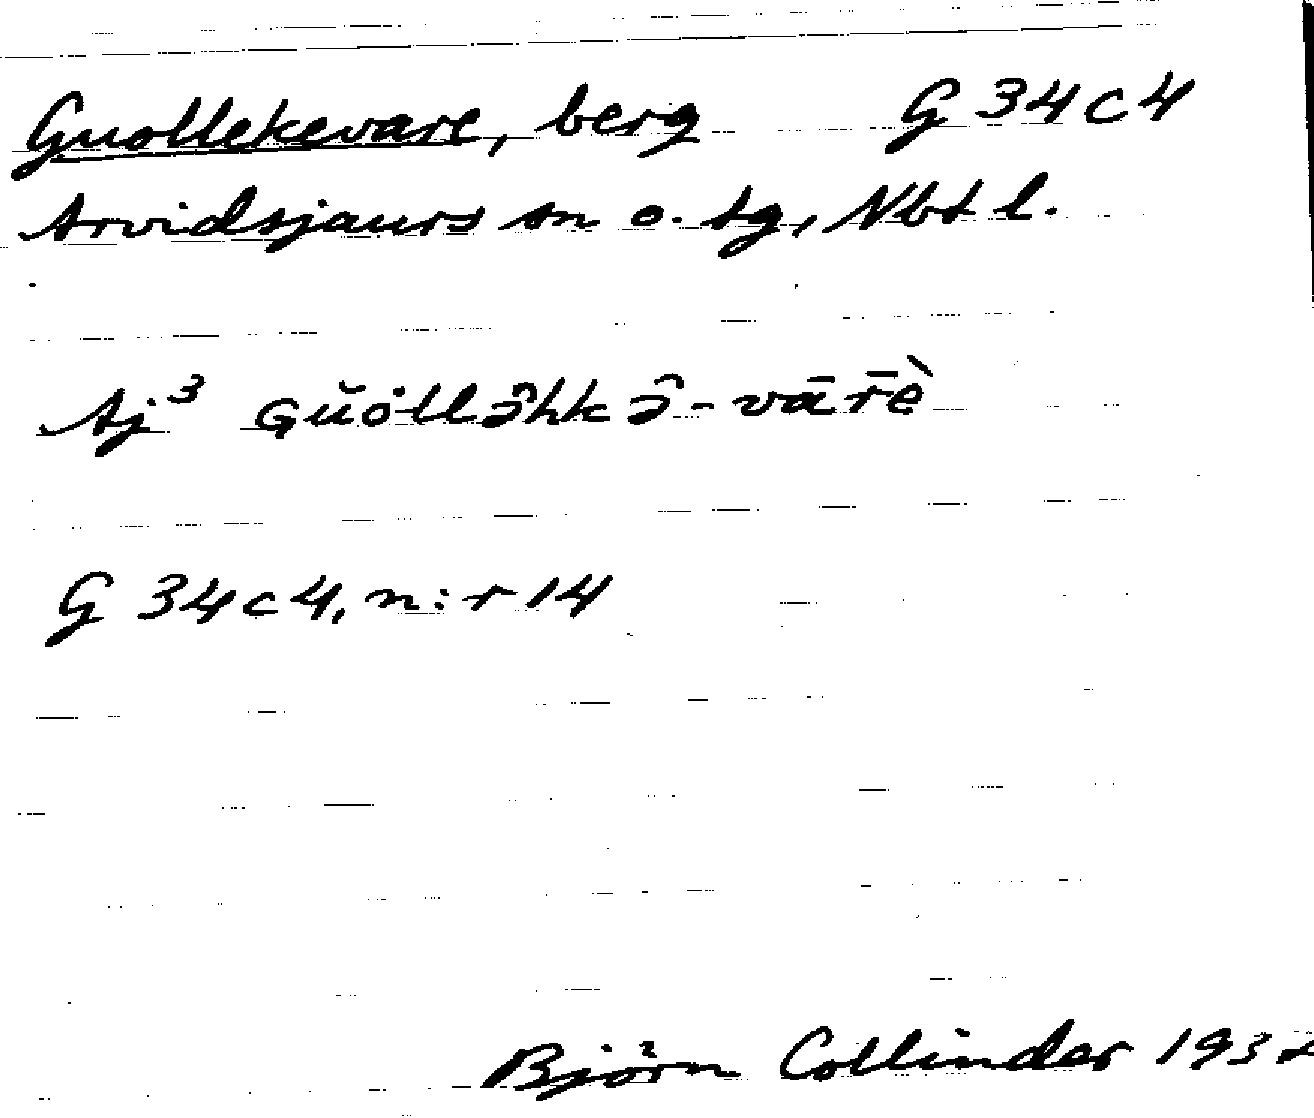 Guollekevare, berg G 34 c 4
Arvidsjaurs sn o. tg, Nbt l.
Aj³ Gŭȯllə̑hkə̑-vār̄ḕ
G 34 c 4, n:r 14
Björn Collinder 1932